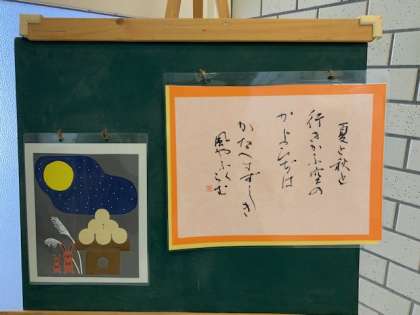 夏と秋と
行きかふ空の
かよひぢは
かたへすずしき
風やふくらむ